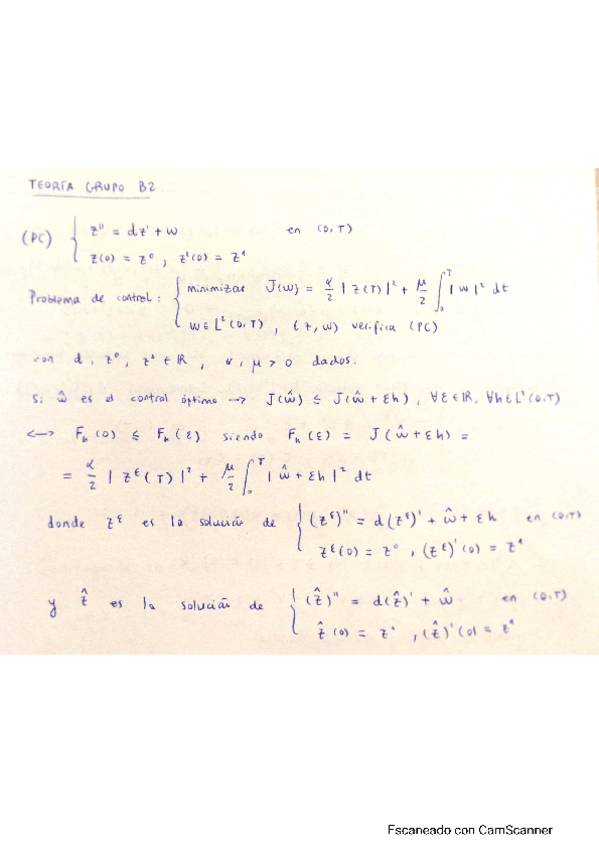 TEORÍA GRUPO B2
(PC) { z'' = dz' + w en (0,T)
z(0) = z⁰, z'(0) = z¹
Problema de control: { minimizar J(w) = α/2 |z(T)|² + μ/2 ∫₀ᵀ |w|² dt
w ∈ L²(0,T), (z,w) verifica (PC)
con d, z⁰, z¹ ∈ ℝ, α, μ > 0 dados.
Si ŵ es el control óptimo → J(ŵ) ≤ J(ŵ + εh), ∀ε∈ℝ, ∀h∈L²(0,T)
<-> Fₕ(0) ≤ Fₕ(ε) siendo Fₕ(ε) = J(ŵ + εh) =
= α/2 |z^ε(T)|² + μ/2 ∫₀ᵀ |ŵ + εh|² dt
donde z^ε es la solución de { (z^ε)'' = d(z^ε)' + ŵ + εh en (0,T)
z^ε(0) = z⁰, (z^ε)'(0) = z¹
y ẑ es la solución de { (ẑ)'' = d(ẑ)' + ŵ en (0,T)
ẑ(0) = z⁰, (ẑ)'(0) = z¹
Escaneado con CamScanner